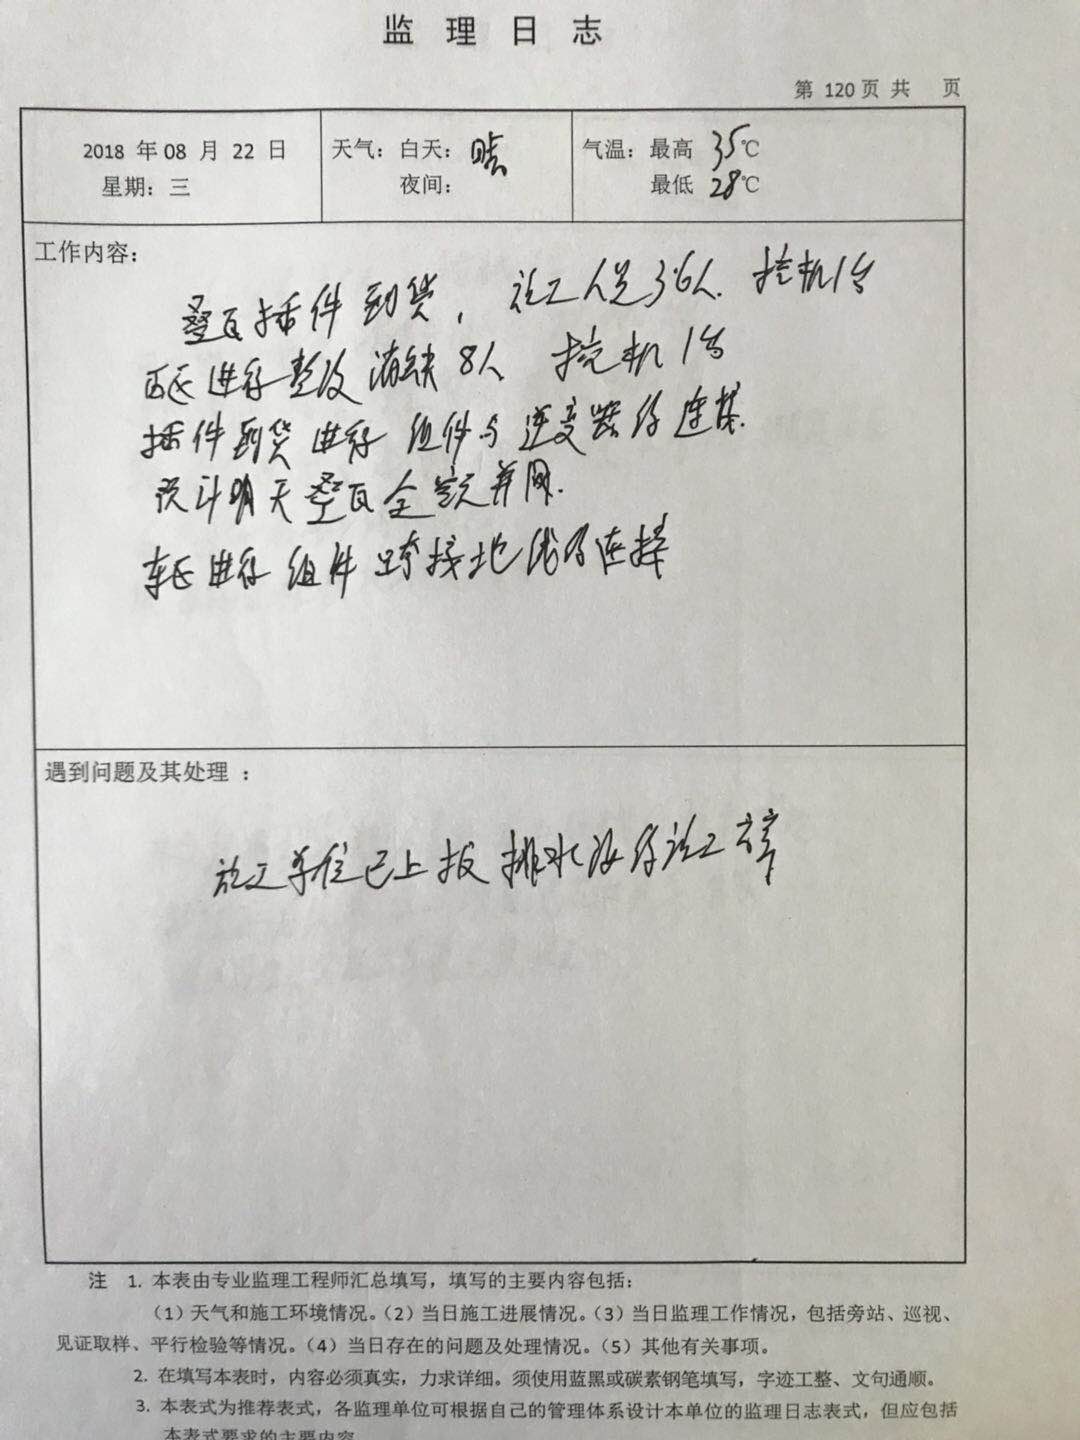 监理日志
第 120 页 共 页
2018 年 08 月 22 日
星期：三
天气：白天：晴
夜间：
气温：最高 35℃
最低 28℃
工作内容：
叠瓦插件到货，施工人员36人. 挖机1台
西区进行整改消缺8人 挖机1台
插件到货进行组件与逆变器的连接.
预计明天叠瓦全容并网.
东区进行组件跨接地线的连接
遇到问题及其处理 ：
施工单位已上报排水沟的施工方案
注 1. 本表由专业监理工程师汇总填写，填写的主要内容包括：
（1）天气和施工环境情况。（2）当日施工进展情况。（3）当日监理工作情况，包括旁站、巡视、
见证取样、平行检验等情况。（4）当日存在的问题及处理情况。（5）其他有关事项。
2. 在填写本表时，内容必须真实，力求详细。须使用蓝黑或碳素钢笔填写，字迹工整、文句通顺。
3. 本表式为推荐表式，各监理单位可根据自己的管理体系设计本单位的监理日志表式，但应包括
本表式要求的主要内容